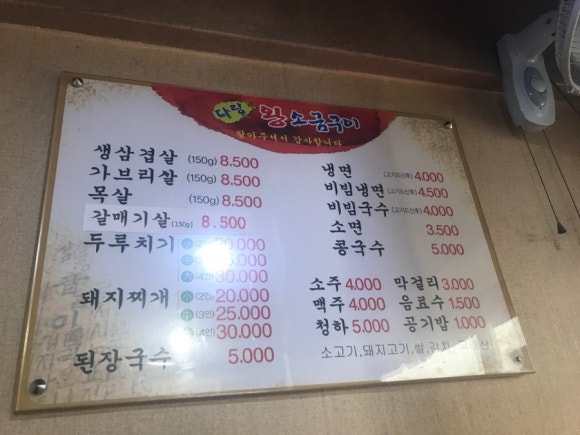 다랑 왕소금구이
찾아주셔서 감사합니다
생삼겹살 (150g) 8.500
가브리살 (150g) 8.500
목살 (150g) 8.500
갈매기살 (150g) 8.500
두루치기 小 20.000
30.000
돼지찌개 小 (2인) 20.000
(3인) 25.000
(4인) 30.000
된장국수 5.000
냉면 (고기드신후) 4.000
비빔냉면 (고기드신후) 4.500
비빔국수 (고기드신후) 4.000
소면 3.500
콩국수 5.000
소주 4.000 막걸리 3.000
맥주 4.000 음료수 1.500
청하 5.000 공기밥 1.000
소고기,돼지고기,쌀,김치